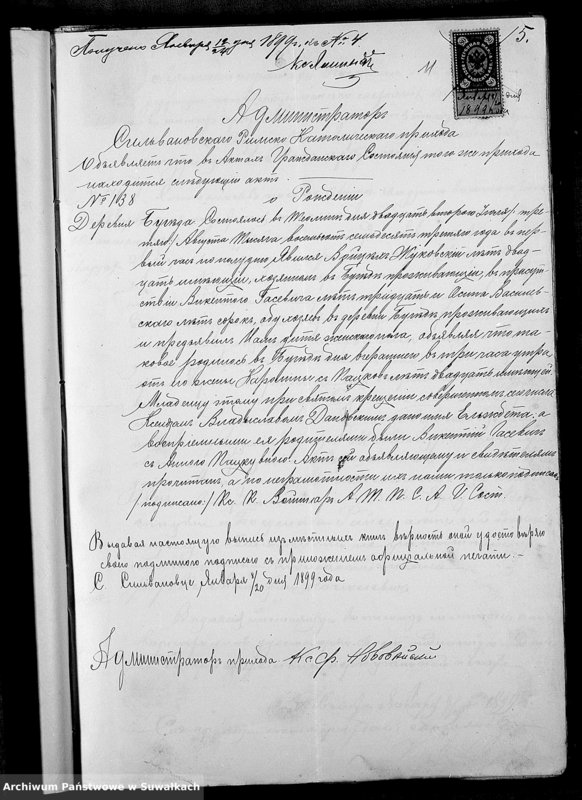 Получено Января 12/24 дня 1899 г. къ № 4
15.
Администраторъ
Сильвановскаго Римско Католическаго прихода
Объявляетъ что въ Актахъ Гражданскаго Состоянія того же прихода
находится слѣдующій актъ.
№ 138 о Рожденіи
Деревня Бужда. Состоялось въ дня двадцать второго Іюля/тре-
тьяго/Августа Тысяча восемьсотъ семьдесятъ третьяго года въ пер-
вый часъ по полудню, Явился Жуковскій лѣтъ двад-
цать имѣющій, хозяинъ въ проживающій, въ присут-
ствіи Викентія Гасевича лѣтъ тридцать и Осипа Василев-
скаго лѣтъ сорокъ, обу хозяевъ въ деревни проживающихъ
и предъявилъ Намъ дитя женскаго пола, объявляя что та-
ковое родилось въ дня вчерашняго въ три часа утра
отъ его жены лѣтъ двадцать имѣющей.
Младенцу этому при святомъ крещеніи совершенномъ сего числа
Ксендзомъ Владиславомъ дано имя Ельжбета, а
воспріемными ея родителями были Викентій Гасевичъ
съ Анною Актъ сей объявляющему и свидѣтелямъ
прочитанъ, а по неграмотности ихъ нами только подписанъ,
/подписано:/ Кс. К. А. Ж. П. С. А. Г. Сост.
Выдавая настоящую выпись изъ мѣстныхъ книгъ вѣрность оной удостовѣряю
своею подлинною подписью съ приложеніемъ оффиціальной печати. -
С. Сильвановце, Января /20 дня 1899 года
Администраторъ прихода
Archiwum Państwowe w Suwałkach